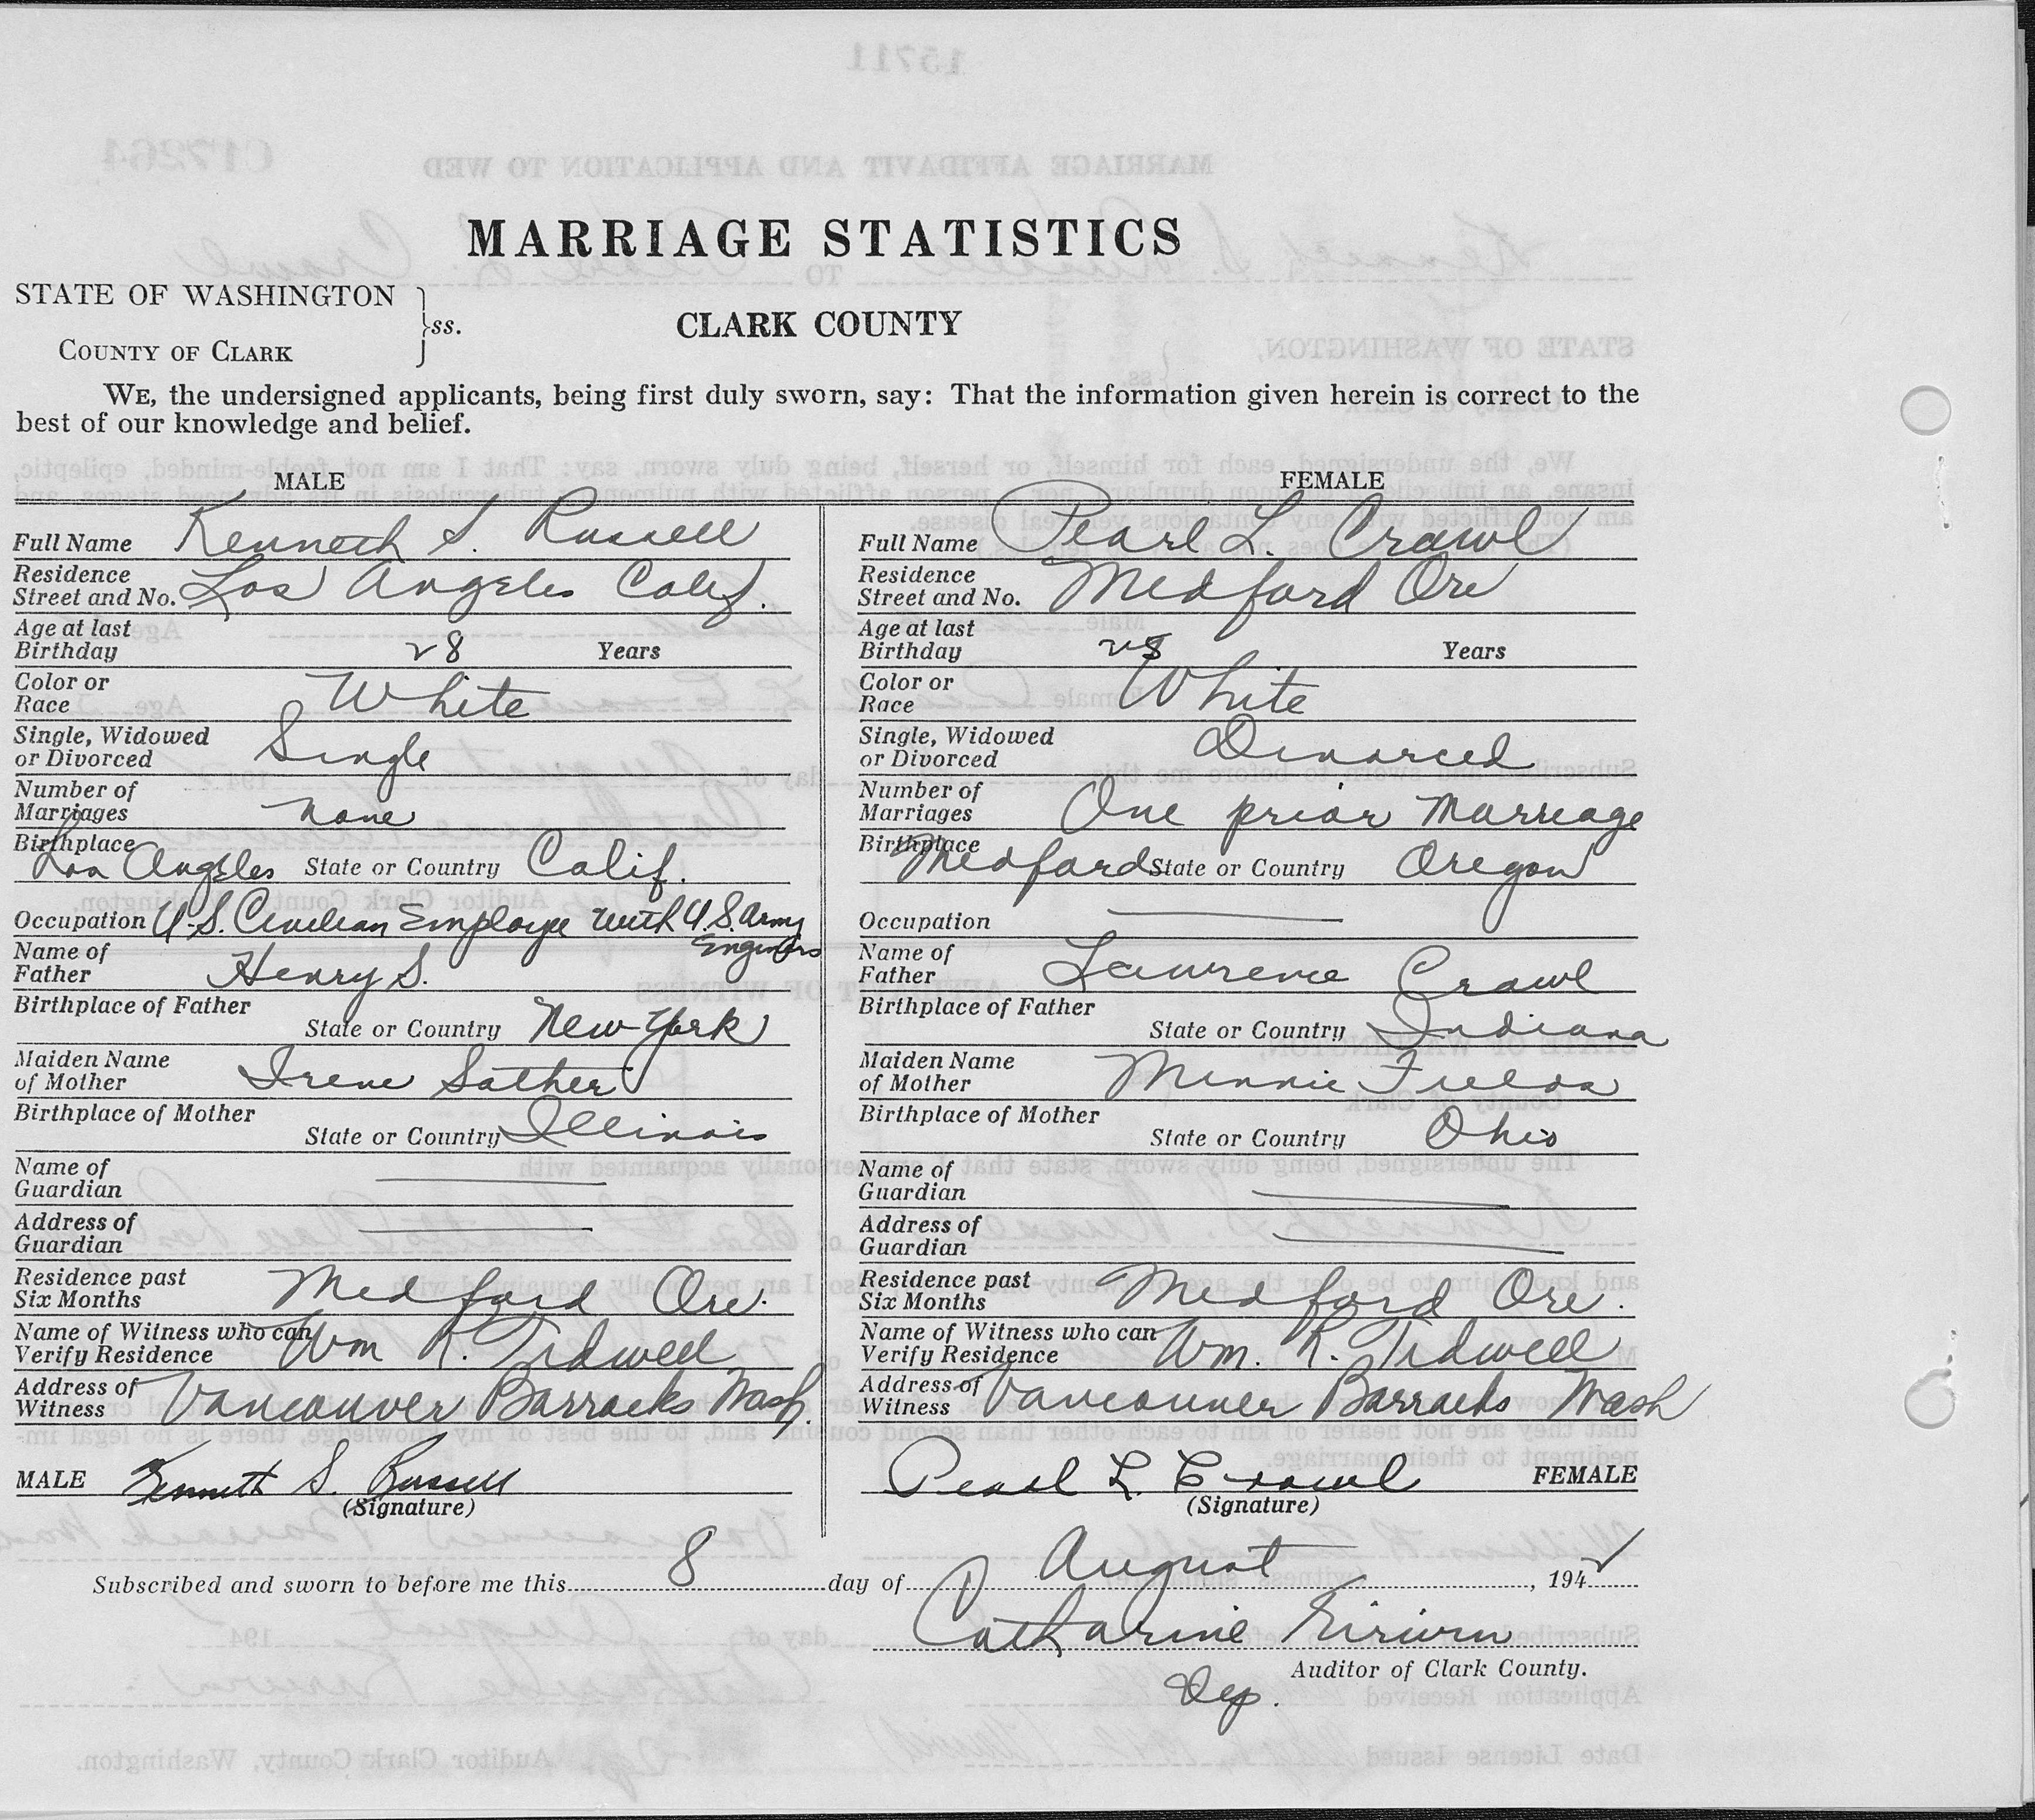 MARRIAGE STATISTICS
STATE OF WASHINGTON
COUNTY OF CLARK
ss.
CLARK COUNTY
WE, the undersigned applicants, being first duly sworn, say: That the information given herein is correct to the
best of our knowledge and belief.
MALE
Full Name Kenneth S. Russell
Residence Street and No. Los Angeles Calif.
Age at last Birthday 28 Years
Color or Race White
Single, Widowed or Divorced Single
Number of Marriages none
Birthplace Los Angeles State or Country Calif.
Occupation U.S. Civilian Employe with U.S. Army Engineers
Name of Father Henry S.
Birthplace of Father State or Country New York
Maiden Name of Mother Irene Sather
Birthplace of Mother State or Country Illinois
Name of Guardian
Address of Guardian
Residence past Six Months Medford Ore.
Name of Witness who can Verify Residence Wm R. Tidwell
Address of Witness Vancouver Barracks Wash.
MALE Kenneth S. Russell
(Signature)
FEMALE
Full Name Pearl L. Crawl
Residence Street and No. Medford Ore
Age at last Birthday 28 Years
Color or Race White
Single, Widowed or Divorced Divorced
Number of Marriages One prior Marriage
Birthplace Medford State or Country Oregon
Occupation
Name of Father Lawrence Crawl
Birthplace of Father State or Country Indiana
Maiden Name of Mother Minnie Fields
Birthplace of Mother State or Country Ohio
Name of Guardian
Address of Guardian
Residence past Six Months Medford Ore.
Name of Witness who can Verify Residence Wm. R. Tidwell
Address of Witness Vancouver Barracks Wash
Pearl L. Crawl FEMALE
(Signature)
Subscribed and sworn to before me this 8 day of August, 1942
Catharine
Auditor of Clark County.
Dep.